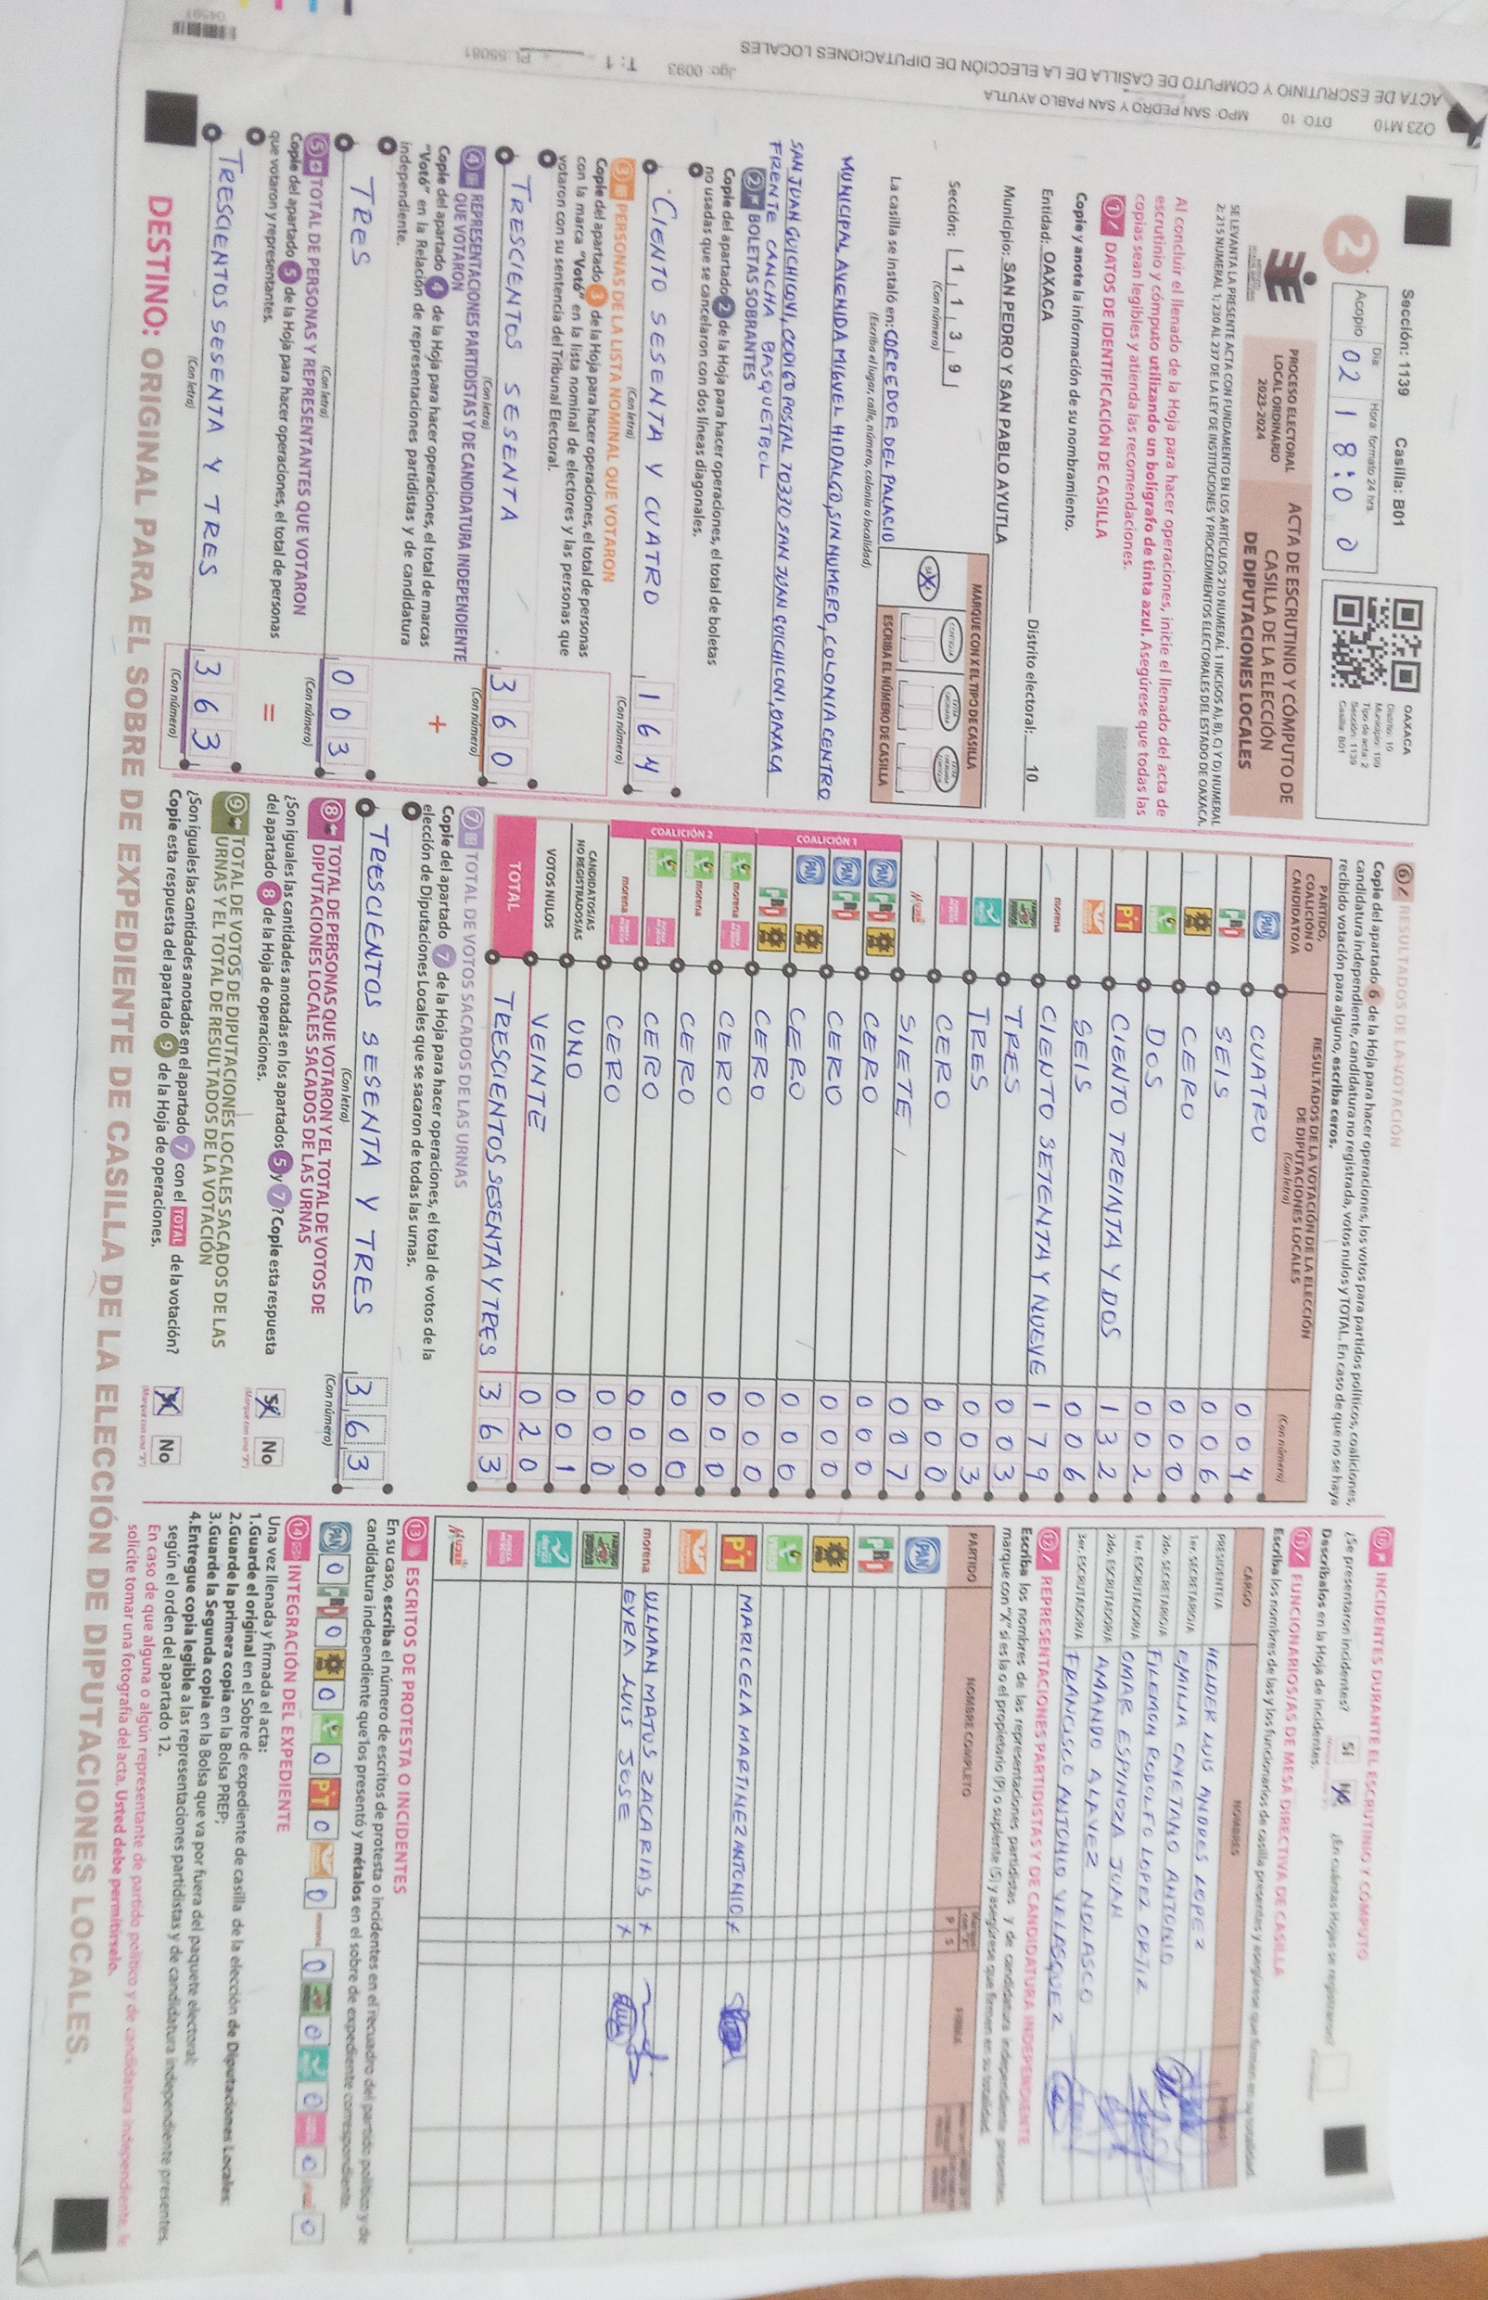 Sección: 1139 Casilla: B01
2
Acopio
Día:
Hora: formato 24 hrs.
02 18:00
OAXACA
Distrito: 10
Municipio: 199
Tipo de acta: 2
Sección: 1139
Casilla: B01
PROCESO ELECTORAL
LOCAL ORDINARIO
2023-2024
ACTA DE ESCRUTINIO Y CÓMPUTO DE
CASILLA DE LA ELECCIÓN
DE DIPUTACIONES LOCALES
SE LEVANTA LA PRESENTE ACTA CON FUNDAMENTO EN LOS ARTÍCULOS 210 NUMERAL 1 INCISOS A), B), C) Y D) NUMERAL
2; 215 NUMERAL 1; 230 AL 237 DE LA LEY DE INSTITUCIONES Y PROCEDIMIENTOS ELECTORALES DEL ESTADO DE OAXACA.
Al concluir el llenado de la Hoja para hacer operaciones, inicie el llenado del acta de
escrutinio y cómputo utilizando un bolígrafo de tinta azul. Asegúrese que todas las
copias sean legibles y atienda las recomendaciones.
1 DATOS DE IDENTIFICACIÓN DE CASILLA
Copie y anote la información de su nombramiento.
Entidad: OAXACA Distrito electoral: 10
Municipio: SAN PEDRO Y SAN PABLO AYUTLA
Sección: 1 1 3 9
(Con número)
MARQUE CON X EL TIPO DE CASILLA
ESCRIBA EL NÚMERO DE CASILLA
La casilla se instaló en: CORREDOR DEL PALACIO
(Escriba el lugar, calle, número, colonia o localidad)
MUNICIPAL AVENIDA MIGUEL HIDALGO, SIN NUMERO, COLONIA CENTRO
SAN JUAN GUICHICOVI, CODIGO POSTAL 70330 SAN JUAN GUICHICOVI, OAXACA
FRENTE CANCHA BASQUETBOL
2 BOLETAS SOBRANTES
Copie del apartado 2 de la Hoja para hacer operaciones, el total de boletas
no usadas que se cancelaron con dos líneas diagonales.
CIENTO SESENTA Y CUATRO 164
(Con letra) (Con número)
3 PERSONAS DE LA LISTA NOMINAL QUE VOTARON
Copie del apartado 3 de la Hoja para hacer operaciones, el total de personas
con la marca "Votó" en la lista nominal de electores y las personas que
votaron con su sentencia del Tribunal Electoral.
TRESCIENTOS SESENTA 360
(Con letra) (Con número)
4 REPRESENTACIONES PARTIDISTAS Y DE CANDIDATURA INDEPENDIENTE
QUE VOTARON
Copie del apartado 4 de la Hoja para hacer operaciones, el total de marcas
"Votó" en la Relación de representaciones partidistas y de candidatura
independiente.
+
TRES 003
(Con letra) (Con número)
5 TOTAL DE PERSONAS Y REPRESENTANTES QUE VOTARON
Copie del apartado 5 de la Hoja para hacer operaciones, el total de personas
que votaron y representantes.
=
TRESCIENTOS SESENTA Y TRES 363
(Con letra) (Con número)
6 RESULTADOS DE LA VOTACIÓN
Copie del apartado 6 de la Hoja para hacer operaciones, los votos para partidos políticos, coaliciones,
candidatura independiente, candidatura no registrada, votos nulos y TOTAL. En caso de que no se haya
recibido votación para alguno, escriba ceros.
PARTIDO,
COALICIÓN O
CANDIDATO/A
RESULTADOS DE LA VOTACIÓN DE LA ELECCIÓN
DE DIPUTACIONES LOCALES
(Con letra) (Con número)
PAN CUATRO 004
PRI SEIS 006
CERO 000
DOS 002
PT CIENTO TREINTA Y DOS 132
SEIS 006
morena CIENTO SETENTA Y NUEVE 179
TRES 003
TRES 003
CERO 000
MUJER SIETE 007
COALICIÓN 1
PAN PRI CERO 000
PAN PRI CERO 000
PAN CERO 000
PRI CERO 000
COALICIÓN 2
morena CERO 000
morena CERO 000
CERO 000
morena CERO 000
CANDIDATOS/AS
NO REGISTRADOS/AS CERO 000
UNO 001
VOTOS NULOS VEINTE 020
TOTAL TRESCIENTOS SESENTA Y TRES 363
7 TOTAL DE VOTOS SACADOS DE LAS URNAS
Copie del apartado 7 de la Hoja para hacer operaciones, el total de votos de la
elección de Diputaciones Locales que se sacaron de todas las urnas.
TRESCIENTOS SESENTA Y TRES 363
(Con letra) (Con número)
8 TOTAL DE PERSONAS QUE VOTARON Y EL TOTAL DE VOTOS DE
DIPUTACIONES LOCALES SACADOS DE LAS URNAS
¿Son iguales las cantidades anotadas en los apartados 5 y 7? Copie esta respuesta
del apartado 8 de la Hoja de operaciones.
Sí No
9 TOTAL DE VOTOS DE DIPUTACIONES LOCALES SACADOS DE LAS
URNAS Y EL TOTAL DE RESULTADOS DE LA VOTACIÓN
¿Son iguales las cantidades anotadas en el apartado 7 con el TOTAL de la votación?
Copie esta respuesta del apartado 9 de la Hoja de operaciones.
Sí No
10 INCIDENTES DURANTE EL ESCRUTINIO Y CÓMPUTO
¿Se presentaron incidentes? Sí No ¿En cuántas Hojas se registraron?
Descríbalos en la Hoja de incidentes.
11 FUNCIONARIOS/AS DE MESA DIRECTIVA DE CASILLA
Escriba los nombres de las y los funcionarios de casilla presentes y asegúrese que firmen en su totalidad.
CARGO NOMBRES
PRESIDENTE/A HELDER LUIS ANDRES LOPEZ
1er. SECRETARIO/A EMILIA CAYETANO ANTONIO
2do. SECRETARIO/A FILEMON RODOLFO LOPEZ ORTIZ
1er. ESCRUTADOR/A OMAR ESPINOZA JUAN
2do. ESCRUTADOR/A AMANDO ALAVEZ NOLASCO
3er. ESCRUTADOR/A FRANCISCO ANTONIO VELASQUEZ
12 REPRESENTACIONES PARTIDISTAS Y DE CANDIDATURA INDEPENDIENTE
Escriba los nombres de las representaciones partidistas y de candidatura independiente presentes,
marque con "X" si es la o el propietario (P) o suplente (S) y asegúrese que firmen en su totalidad.
PARTIDO NOMBRE COMPLETO P S FIRMA
PAN
PRI
PT MARICELA MARTINEZ ANTONIO X
morena ULMAN MATUS ZACARIAS X
EYRA LUIS JOSE X
MUJER
13 ESCRITOS DE PROTESTA O INCIDENTES
En su caso, escriba el número de escritos de protesta o incidentes en el recuadro del partido político y de
candidatura independiente que los presentó y métalos en el sobre de expediente correspondiente.
PAN 0 PRI 0 0 0 PT 0 0 morena 0 0 0 0 0
14 INTEGRACIÓN DEL EXPEDIENTE
Una vez llenada y firmada el acta:
1.Guarde el original en el Sobre de expediente de casilla de la elección de Diputaciones Locales;
2.Guarde la primera copia en la Bolsa PREP;
3.Guarde la Segunda copia en la Bolsa que va por fuera del paquete electoral;
4.Entregue copia legible a las representaciones partidistas y de candidatura independiente presentes,
según el orden del apartado 12.
En caso de que alguna o algún representante de partido político y de candidatura independiente, le
solicite tomar una fotografía del acta, Usted debe permitírselo.
DESTINO: ORIGINAL PARA EL SOBRE DE EXPEDIENTE DE CASILLA DE LA ELECCIÓN DE DIPUTACIONES LOCALES.
023 M10 DTO. 10 MPO. SAN PEDRO Y SAN PABLO AYUTLA
ACTA DE ESCRUTINIO Y COMPUTO DE CASILLA DE LA ELECCIÓN DE DIPUTACIONES LOCALES
Jgo: 0093 T: 1 PL:55081